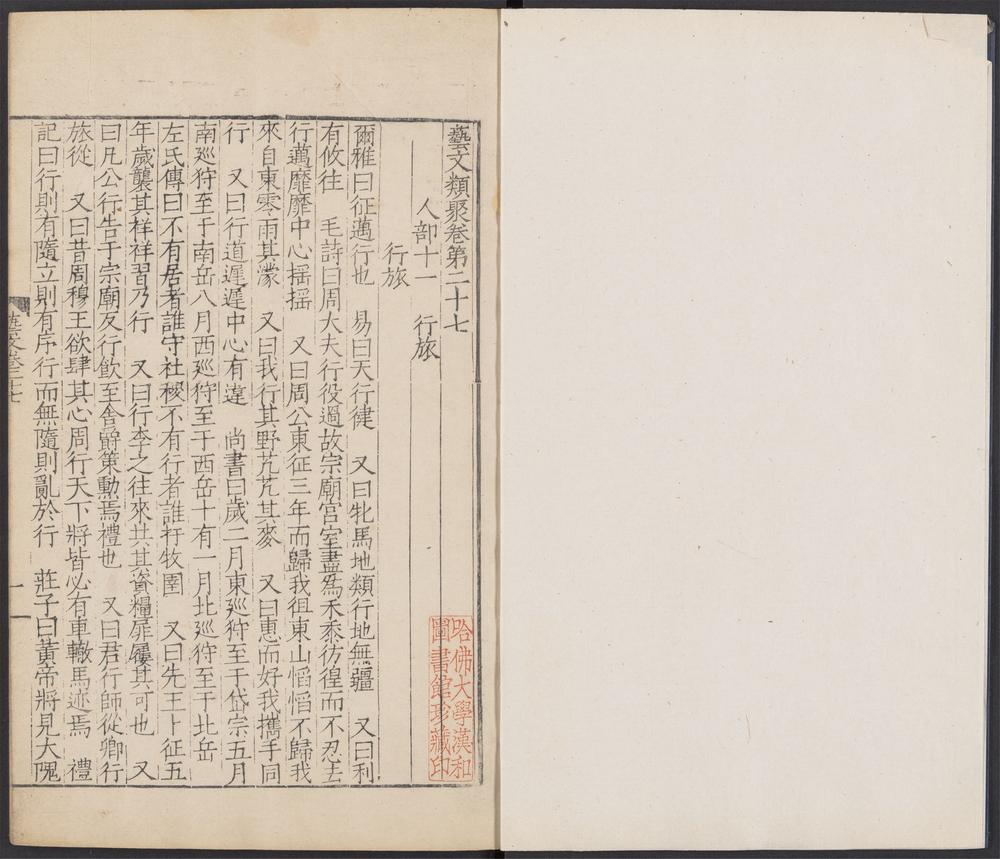 藝文類聚卷第二十七
人部十一　行旅
行旅
爾雅曰征邁行也　易曰天行健　又曰牝馬地類行地無疆　又曰利
有攸往　毛詩曰周大夫行役過故宗廟宫室盡爲禾黍彷徨而不忍去
行邁靡靡中心揺揺　又曰周公東征三年而歸我徂東山慆慆不歸我
來自東零雨其濛　又曰我行其野芃芃其麥　又曰惠而好我攜手同
行　又曰行道遲遲中心有違　尚書曰歲二月東廵狩至于岱宗五月
南廵狩至于南岳八月西廵狩至于西岳十有一月北廵狩至于北岳
左氏傳曰不有居者誰守社稷不有行者誰扞牧圉　又曰先王卜征五
年歲襲其祥祥習乃行　又曰行李之往來共其資糧屝屨其可也　又
曰凡公行告于宗廟反行飲至舎爵策勲焉禮也　又曰君行師從卿行
旅從　又曰昔周穆王欲肆其心周行天下將皆必有車轍馬迹焉　禮
記曰行則有隨立則有序行而無隨則亂於行　莊子曰黃帝將見大隗
藝文卷二十七
一
哈佛大學漢和
圖書館珍藏印